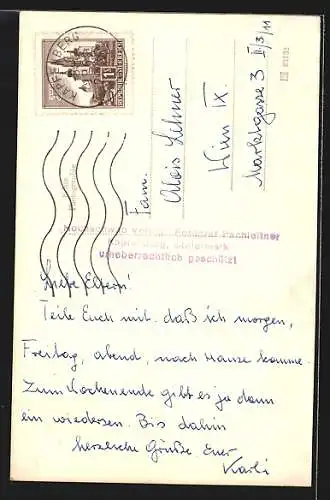 KAPFENBERG
Fam.
Alois Lehner
Wien IX.
Marktgasse 3 II/3/11
Hochschwab Verlag, Fotograf Pachleitner
Kapfenberg, Steiermark
urheberrechtlich geschützt
Liebe Eltern!
Teile Euch mit daß ich morgen,
Freitag, abend, nach Hause komme.
Zum Wochenende gibt es ja dann
ein wiedersen. Bis dahin
herzliche Grüße Euer
Karli